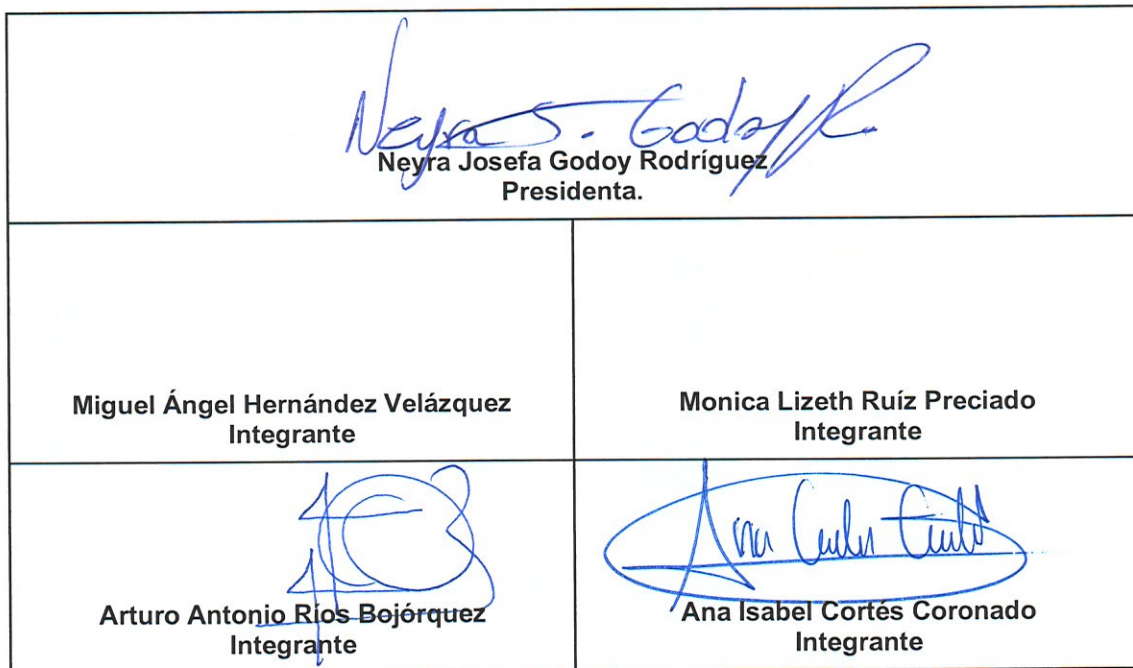 Neyra J. Godoy R.
Neyra Josefa Godoy Rodríguez
Presidenta.
Miguel Ángel Hernández Velázquez
Integrante
Monica Lizeth Ruíz Preciado
Integrante
Arturo Antonio Ríos Bojórquez
Integrante
Ana Isabel Cortés Coronado
Integrante